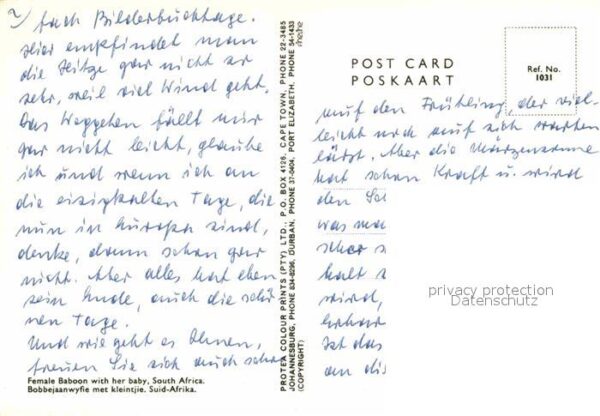 2) fach Bilderbuchtage.
Hier empfindet man
die Hitze gar nicht so
sehr, weil viel Wind geht.
Das Weggehen fällt mir
gar nicht leicht, glaube
ich und wenn ich an
die eisigkalten Tage, die
nun in Europa sind,
denke, dann schon gar
nicht. Aber alles hat eben
sein Ende, auch die schö-
nen Tage.
Und wie geht es Ihnen,
freuen Sie sich auch schon
Female Baboon with her baby, South Africa.
Bobbejaanwyfie met kleintjie. Suid-Afrika.
PROTEA COLOUR PRINTS (PTY) LTD., P.O. BOX 4126, CAPETOWN, PHONE 22-3485
JOHANNESBURG, PHONE 834-8296, DURBAN, PHONE 37-0404, PORT ELIZABETH, PHONE 54-1433
(COPYRIGHT)
POST CARD
POSKAART
Ref. No.
1031
auf den Frühling, der viel-
leicht noch auf sich warten
lässt. Aber die Märzensonne
hat schon Kraft u. wird
den
was
kalt
wird,
Ist das
an
privacy protection
Datenschutz